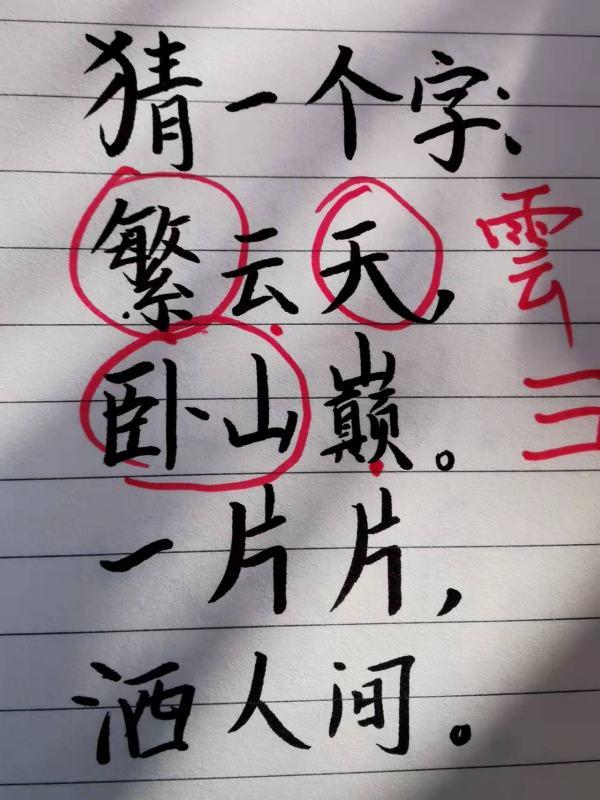 猜一个字:
繁云天,
雲
卧山巅。
一片片,
洒人间。